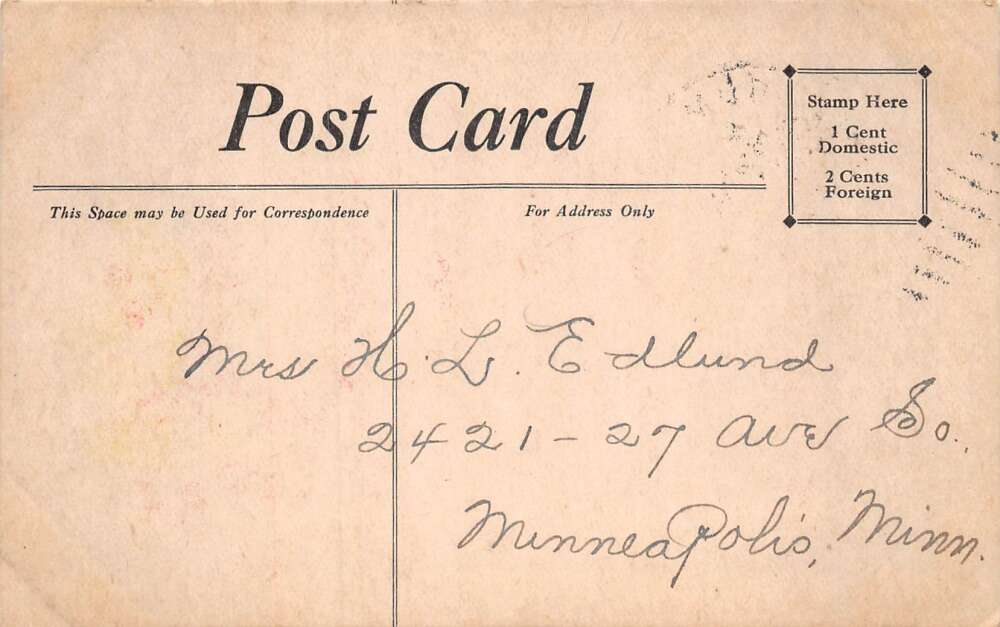 Post Card
Stamp Here
1 Cent
Domestic
2 Cents
Foreign
This Space may be Used for Correspondence
For Address Only
Mrs H. L. Edlund
2421 - 27 Ave So.
Minneapolis, Minn.